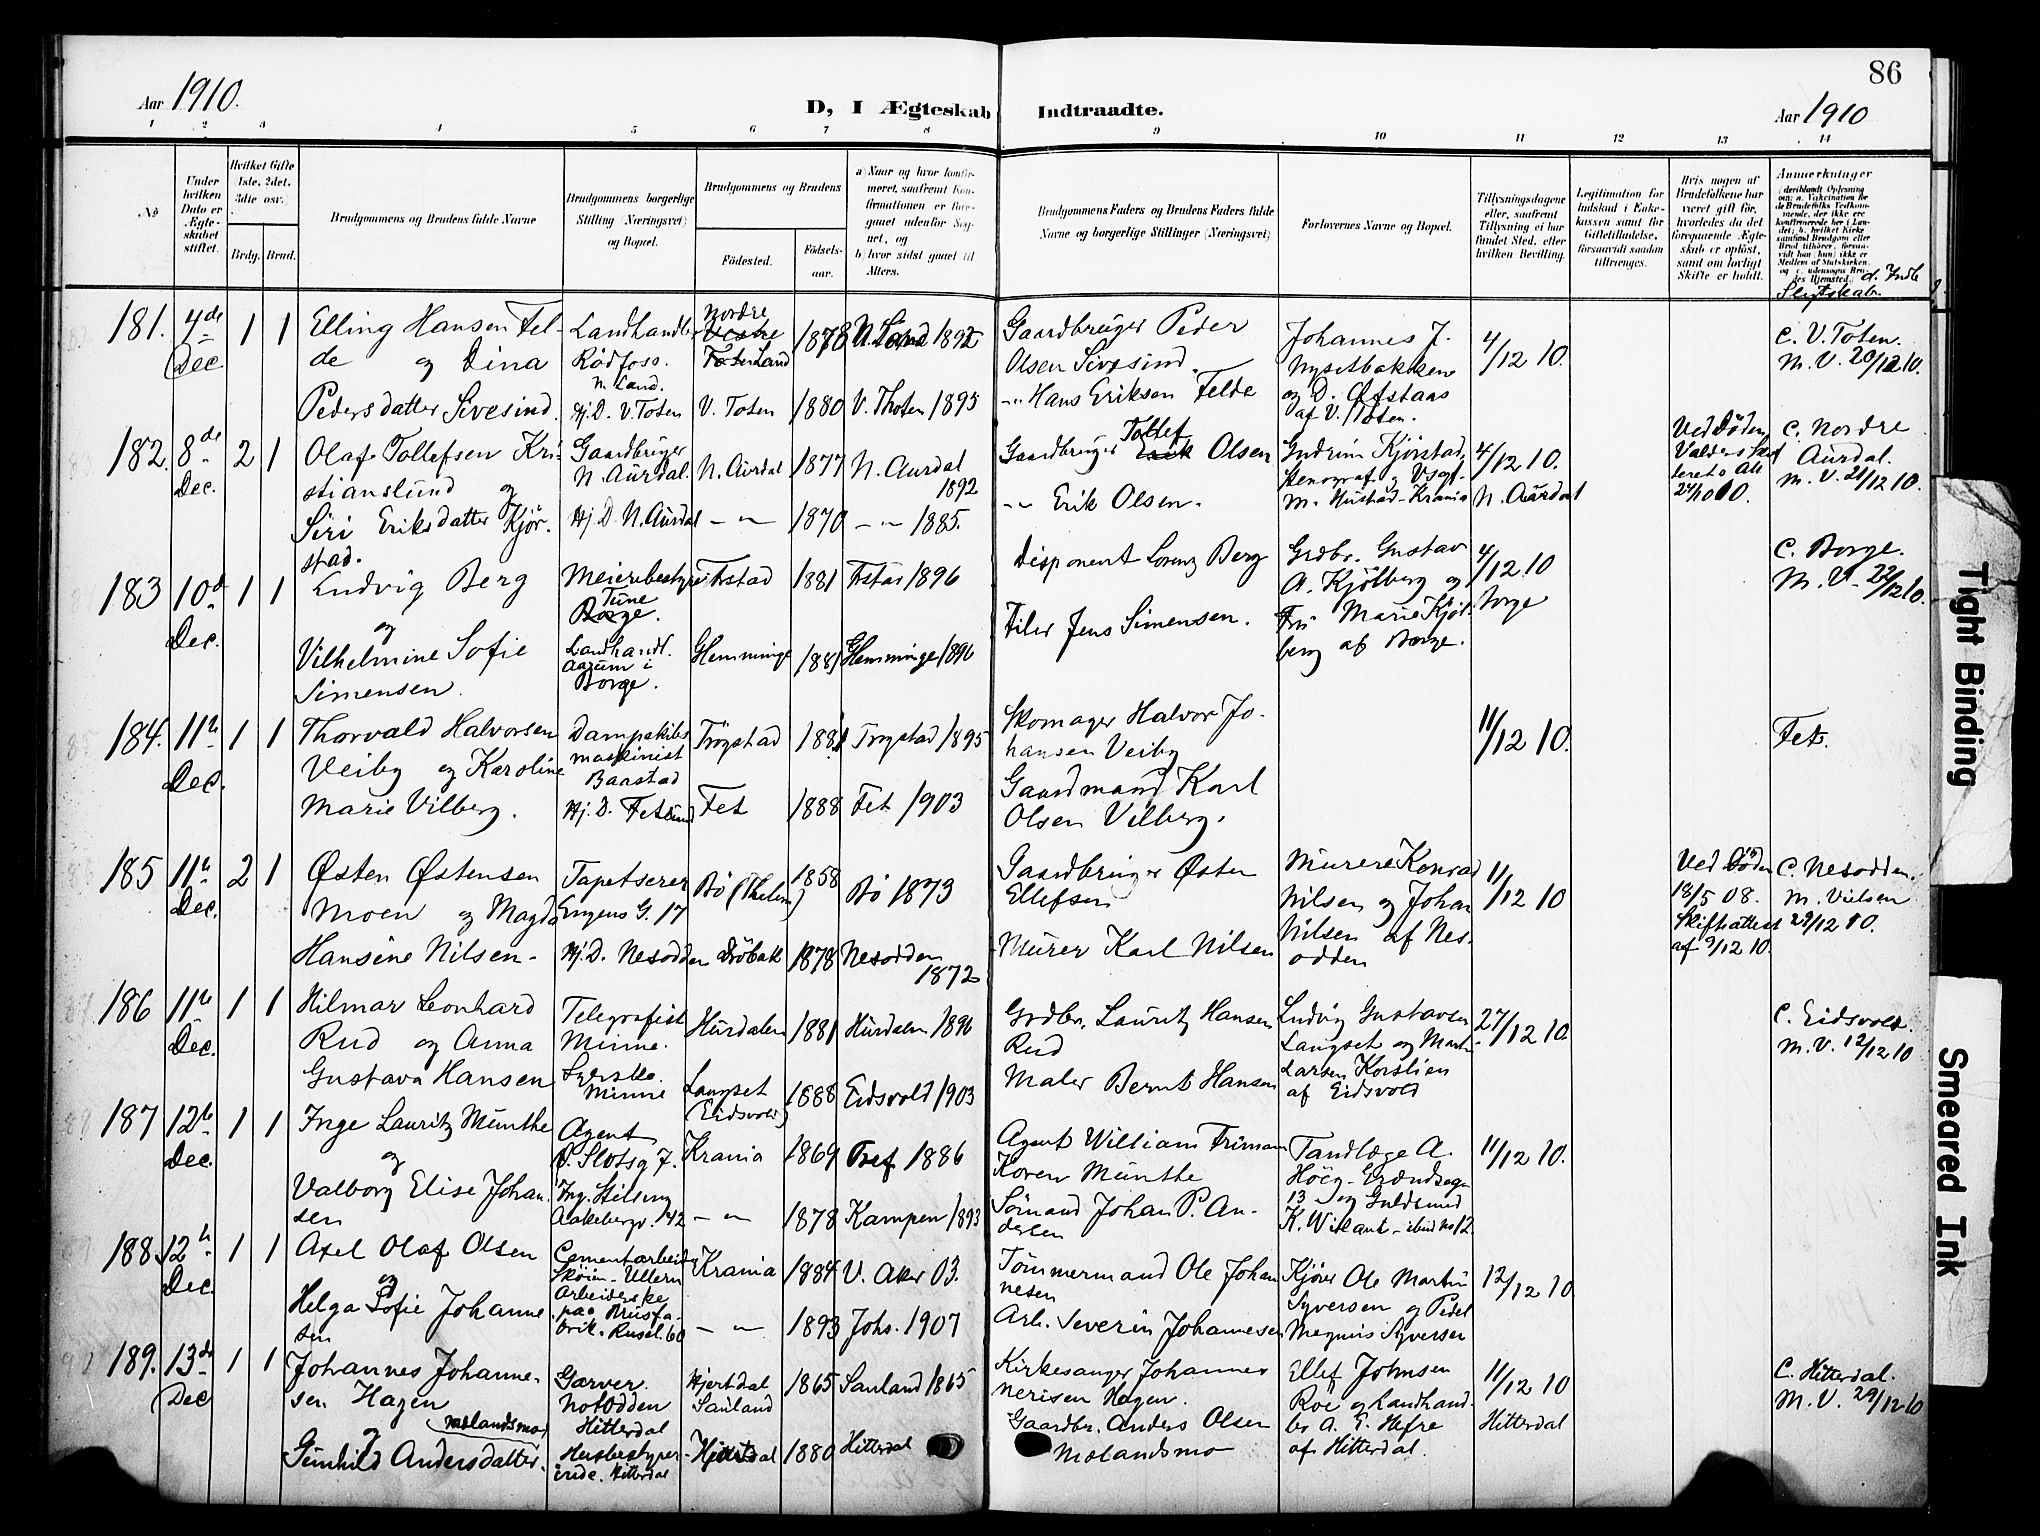 86
Aar 1910.
D, I Ægteskab Indtraadte.
Aar 1910
1 2 3 4 5 6 7 8 9 10 11 12 13 14
No
Under hvilken Dato er Ægteskabet stiftet.
Hvilket Gifte (1ste, 2det, 3die osv.)
Brdg. Brud.
Brudgommens og Brudens fulde Navne
Brudgommens borgerlige Stilling (Næringsvei) og Bopæl.
Brudgommens og Brudens
Fødested.
Fødsels-aar.
a) Naar og hvor konfirmeret, saafremt Konfirmationen er foregaaet udenfor Sognet, og
b) hvor sidst gaaet til Alters.
Brudgommens Faders og Brudens Faders fulde Navne og borgerlige Stillinger (Næringsvei)
Forlovernes Navne og Bopæl.
Tillysningsdagene eller, saafremt Tillysning ei har fundet Sted, efter hvilken Bevilling.
Legitimation for Indskud i Enkekassen samt for Giftetilladelse, forsaavidt saadan tiltrænges.
Hvis nogen af Brudefolkene har været gift før, hvorledes da det foregaaende Ægteskab er opløst, samt om lovligt Skifte er holdt.
Anmærkninger
d. Indb. Slegtskab.
181. 4de Dec 1 1
Elling Hansen Fel-
de og Dina
Pedersdatter Sivesind.
Landhandler
Rødfoss.
n. Land.
Hj. D. V. Toten
Nordre
Land
V. Toten
1878
1880
N. Land 1892
V. Thoten 1895
Gaardbruger Peder
Olsen Sivesind.
-"- Hans Eriksen Felde
Johannes J.
Nysetbakkene
og D. Øfstaas
af V. Toten.
4/12 10.
C. V. Toten.
M. V. 20/12 10.
182. 8de Dec. 2 1
Olaf Tollefsen Kri-
stianslund og
Siri Eriksdatter Kjør-
stad.
Gaardbruger
N. Aurdal.
Hj. D. N. Aurdal
N. Aurdal
-"-
1877
1870
N. Aurdal
1892
-"- 1885.
Gaardbruger Tollef Olsen
-"- Erik Olsen.
Gudrun Kjørstad,
Stenograf og Vogt-
m. Hustad - Krania
4/12 10.
N. Aurdal
Ved Døden
24/10 00.
C. Nordre
Aurdal.
M. V. 21/12 10.
183 10d Dec. 1 1
Ludvig Berg
og
Vilhelmine Sofie
Simensen.
Meieribestyrer
Tune
Borge.
Landhandl.
Aarum i
Borge.
Thstad
Glemminge
1881
1881
Thstad 1896
Glemminge 1896
Disponent Lorenz Berg
Filer Jens Simensen.
Grdbr. Gustav
A. Kjölberg og
Fru Marie Kjöl-
berg af Borge.
4/12 10
Borge
C. Borge.
M. V. 22/12 10.
184. 11te Dec. 1 1
Thorvald Halvorsen
Veiby og Karoline
Marie Vilberg.
Dampskibs
maskinist
Baastad
Hj. D. Fetsund
Trögstad
Fet
1881
1888
Trøgstad 1895
Fet 1903
Skomager Halvor Jo-
hansen Veiby
Gaardmand Karl
Olsen Vilberg.
11/12 10.
Fet.
185 11te Dec. 2 1
Østen Østensen
Moen og Magda
Hansine Nilsen -
Tapetserer
Engens G. 17
Hj. D. Nesodden
Bö (Thelem)
Dröbak
1858
1878
Bö 1873
Nesodden
1872
Gaardbruger Østen
Ellefsen
Murer Karl Nilsen
Murere Konrad
Nilsen og Johan
Nilsen af Nes-
odden
11/12 10
Ved Døden
18/5 08.
Skifteattest
af 9/12 10.
C. Nesodden.
M. Vielsen
29/12 10.
186 11te Dec. 1 1
Hilmar Leonhard
Rud og Anna
Gustava Hansen
Telegrafist
Minne.
Syerske.
Minne
Hurdalen
Langset
(Eidsvold)
1881
1888
Hurdalen 1896
Eidsvold 1903
Grdbr. Lauritz Hansen
Rud
Maler Bernt Hansen
Ludvig Gustavsen
Langset og Martin
Larsen Korslien
af Eidsvold
27/12 10.
C. Eidsvold.
M. V. 12/12 10
187 12te Dec. 1 1
Inge Lauritz Munthe
og
Valborg Elise Johan-
sen
Agent
P. Slotsg 7.
Aakebergv. 42
Krania
-"-
1869
1878
Tref. 1886
Kampen 1893
Agent William Friman
Koren Munthe
Sömand Johan P. An-
dersen
Tandlæge A.
Höeg - Grændsegn
13 og Guldsmed
K. Wilant - ibid no 12.
11/12 10.
188. 12te Dec. 1 1
Axel Olaf Olsen
og
Helga Sofie Johanne
sen
Cementarbeider
Skøien - Ullern
Arbeiderske
paa Brusfa-
brik. Rusel. 60
Krania
-"-
1884
1893
V. Aker 03.
Johs. 1907
Tömmermand Ole Johan
nesen
Arb. Severin Johannesen
Kjører Ole Martin
Syversen og Peder
Magnus Syversen
12/12 10
189. 13de Dec 1 1
Johannes Johanne-
sen Hagen
og (Molandsmo)
Gunhild Andersdatter.
Garver.
Notodden
Hitterdal
Husbestyrer
inde. Hitterdal
Hjertdal
Sauland
Hjertdal
1865
1880
Sauland 1865
Hitterdal
Kirkesanger Johannes
nerisen Hagen.
Gaardbr. Anders Olsen
Molandsmo
Ellef Johnsen
Roe og Landhand-
ler A. E. Hefre
af Hitterdal.
11/12 10
Hitterdal
C. Hitterdal.
M. V. 29/12 10
Tight Binding
Smeared Ink